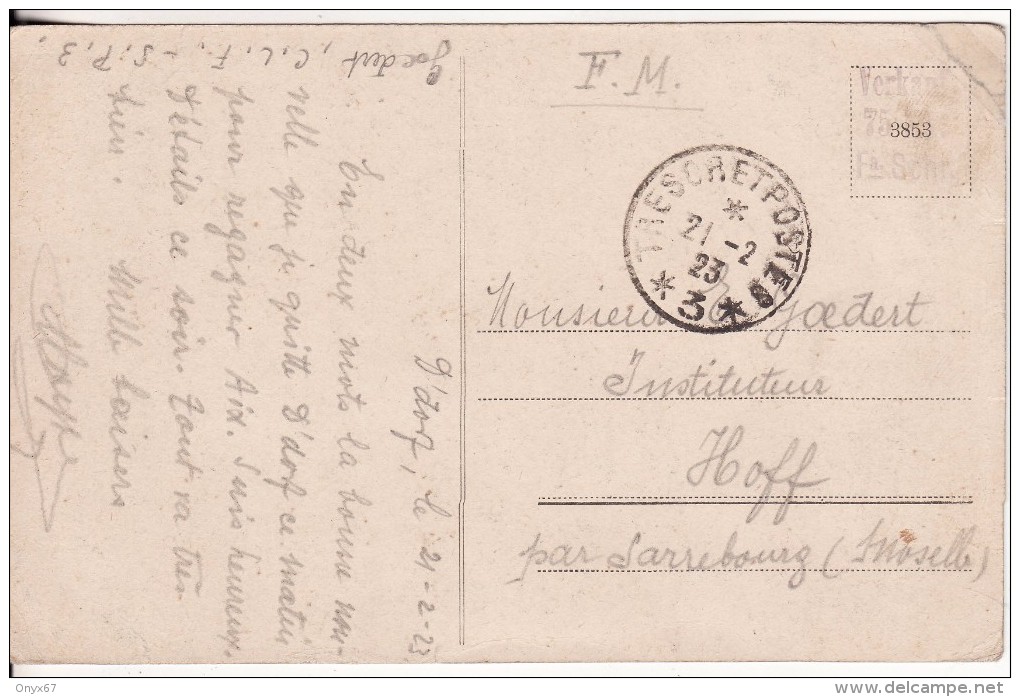 Goedert, C.L.F. - S.P. 3
D'dorf, le 21-2-23
En deux mots la bonne nou-
velle que je quitte D'dorf ce matin
pour regagner Aix. Suis heureux.
Détails ce soir. Tout va très
bien. Mille baisers
F. M.
Verkauf
75
Fr. Schr.
3853
TRESOR ET POSTES
21 -2
23
* 3 *
Monsieur Goedert
Instituteur
Hoff
par Sarrebourg (Moselle)
Onyx67
delcampe.net